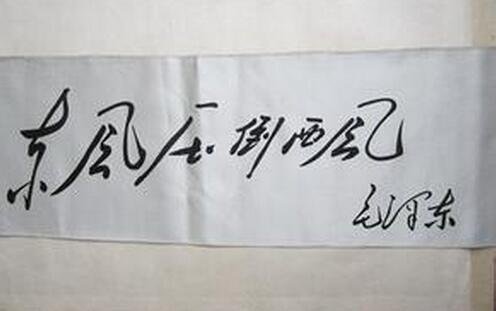 东风压倒西风
毛泽东